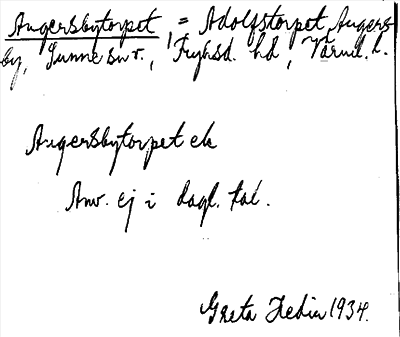 Augersbytorpet, = Adolfstorpet, Augers-
by, Sunne sn r., Fryksd. hd, Värml. l.
Augersbytorpet ek
Anv. ej i dagl. tal.
Greta Hedin 1934.